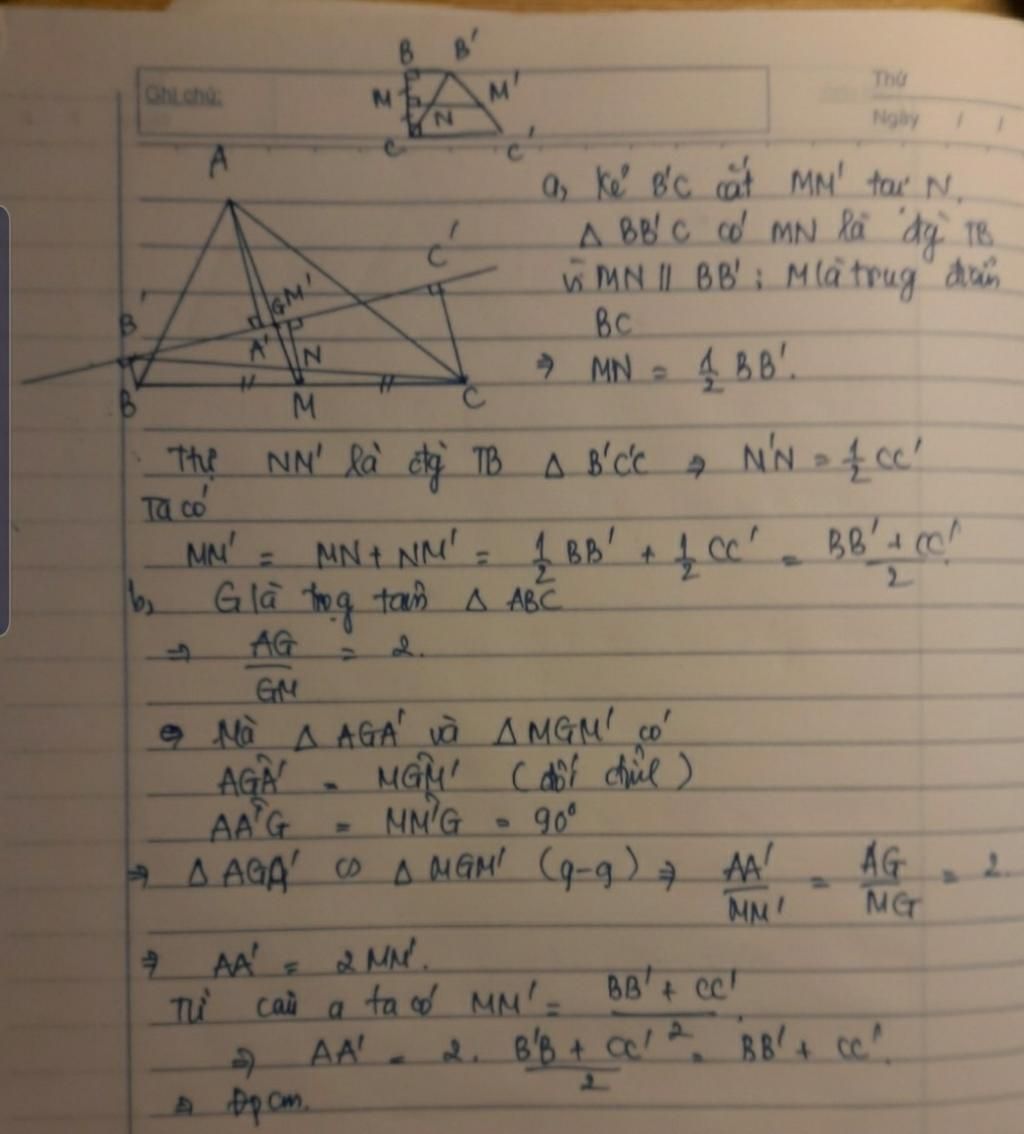 B B'
Ghi chú: M M' Thứ
N Ngày / /
C C'
A
a, Kẻ B'C cắt MM' tại N.
Δ BB'C có MN là đg TB
vì MN // BB' ; M là trug điểm
BC
⇒ MN = 1/2 BB'.
C'
B' G M'
A' N
B M C
Ttự NM' là đg TB Δ B'C'C ⇒ N'N = 1/2 CC'
Ta có
MM' = MN + NM' = 1/2 BB' + 1/2 CC' = (BB' + CC')/2.
b, G là trọg tâm Δ ABC
⇒ AG/GM = 2.
⇒ Mà Δ AGA' và Δ MGM' có
AGA' = MGM' (đối đỉnh)
AA'G = MM'G = 90°
⇒ Δ AGA' ∽ Δ MGM' (g-g) ⇒ AA'/MM' = AG/MG = 2.
⇒ AA' = 2MM'.
Từ câu a ta có MM' = (BB' + CC')/2.
⇒ AA' = 2. (B'B + CC')/2 = BB' + CC'.
⇒ Đpcm.